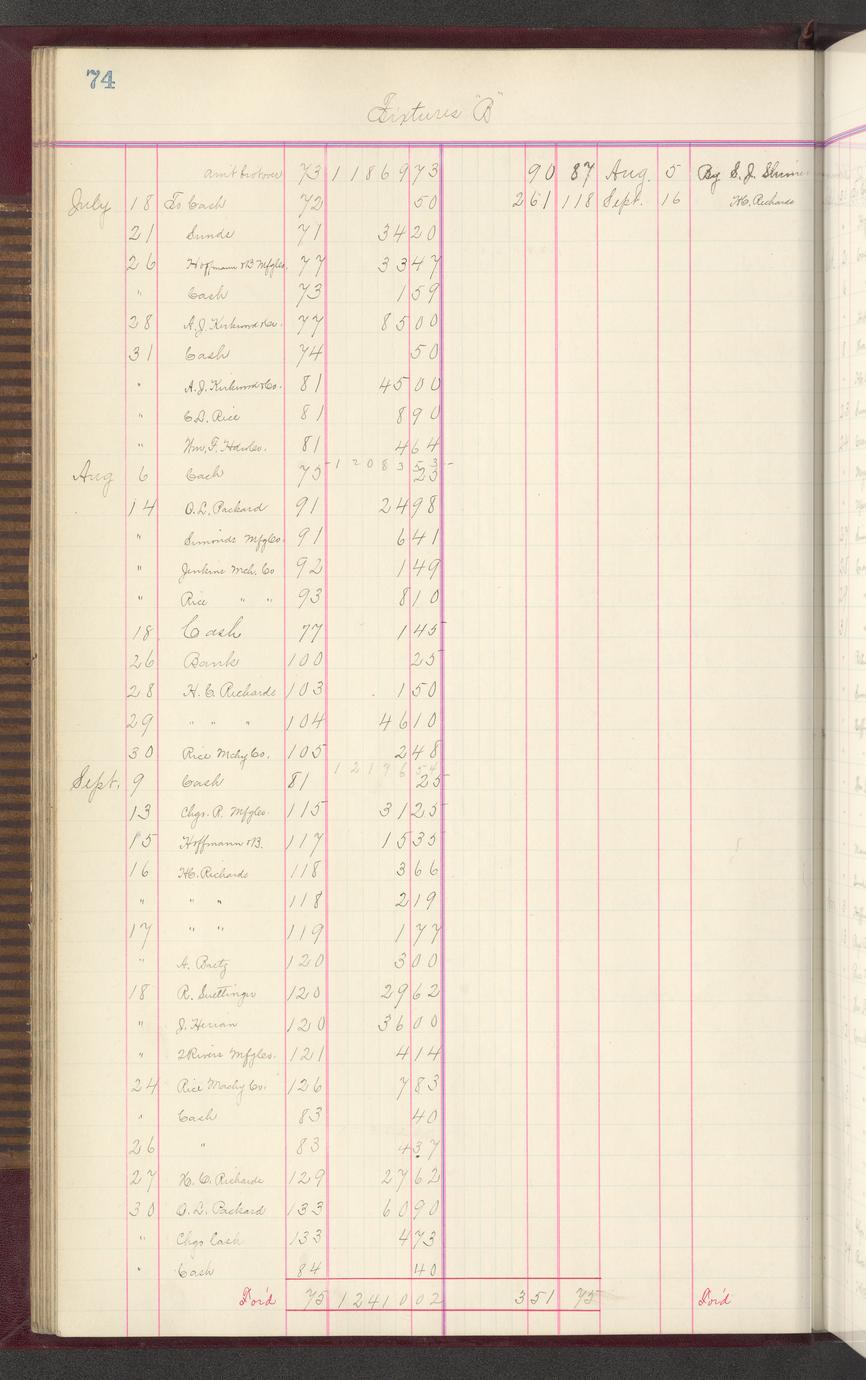 74
Fixtures "B"
amt bro't over 73 11869 73 90 87 Aug. 5 By S. J.
July 18 To Cash 72 50 2 61 118 Sept. 16 H.C. Richards
21 Sunds 71 34 20
26 Hoffmann &B Mfg Co. 77 33 47
" Cash 73 1 59
28 A.J. Kirkwood & Co. 77 85 00
31 Cash 74 50
" A.J. Kirkwood & Co. 81 45 00
" C.L. Rice 81 8 90
" Wm. F. 81 4 64
12083 53
Aug 6 Cash 75 25
14 O.L. Packard 91 24 98
" Simonds Mfg Co. 91 6 41
" Jenkins Mch. Co 92 1 49
" Rice " " 93 8 10
18 Cash 77 1 45
26 Bank 100 25
28 H.C. Richards 103 1 50
29 " " " 104 46 10
30 Rice Mchy Co. 105 2 48
12176 54
Sept. 9 Cash 81 25
13 Chgo. R. Mfg Co. 115 31 25
15 Hoffmann &B. 117 15 35
16 H.C. Richards 118 3 66
" " " 118 2 19
17 " " 119 1 77
" A. 120 3 00
18 R. Suettinger 120 29 62
" J. Herran 120 36 00
" 2Rivers Mfg Co. 121 4 14
24 Rice Machy Co. 126 7 83
" Cash 83 40
26 " 83 4 37
27 H.C. Richards 129 27 62
30 O.L. Packard 133 60 90
" Chgs Cash 133 4 73
" Cash 84 40
For'd 75 12410 02 3 51 75 For'd